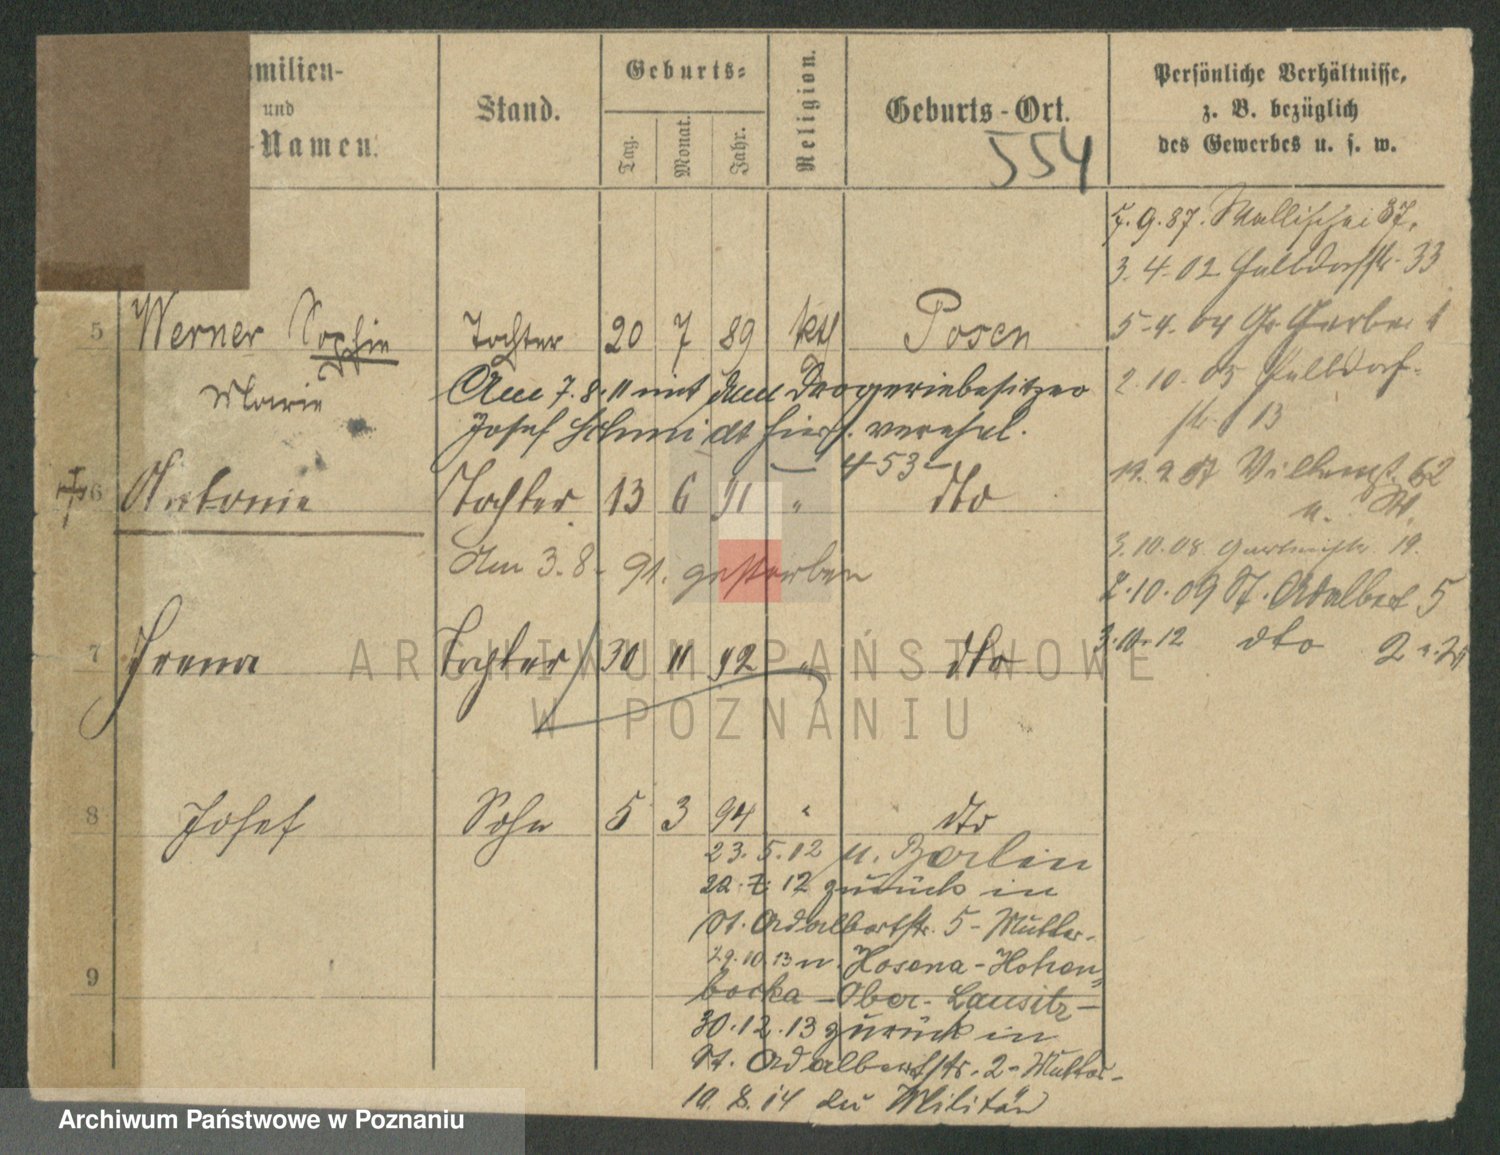 amilien-
und
-Namen.
Stand.
Geburts-
Tag.
Monat.
Jahr.
Religion.
Geburts-Ort.
554
Persönliche Verhältnisse,
z. B. bezüglich
des Gewerbes u. s. w.
5.9.87. Wallischei 37.
3.4.02 Halbdorfstr. 33
5 Werner Sophie Tochter 20 7 89 ktl Posen
5.4.04 Gr Gerber
Marie
Am 7.8.11 mit dem Drogeriebesitzer
2.10.05 Halbdorf-
str. 13
Josef Schmidt hiers. verehel.
453
6 Antonie Tochter 13 6 91 " dto
62
u.
Am 3.8.91. gestorben
3.10.08 Gartenstr. 19.
2.10.09 St. Adalbert 5
3.10.12 dto 2
7 Irena Tochter 30 11 92 " dto
ARCHIWUM PAŃSTWOWE
W POZNANIU
8 Josef Sohn 5 3 94 " dto
23.5.12 n. Berlin
22.7.12 zurück in
St. Adalbertstr. 5 - Mutter-
29.10.13 n. Hosena-Hohen-
9
bocka - Ober-Lausitz-
30.12.13 zurück in
St. Adalbertstr. 2 - Mutter-
10.8.14 zu Militär
Archiwum Państwowe w Poznaniu